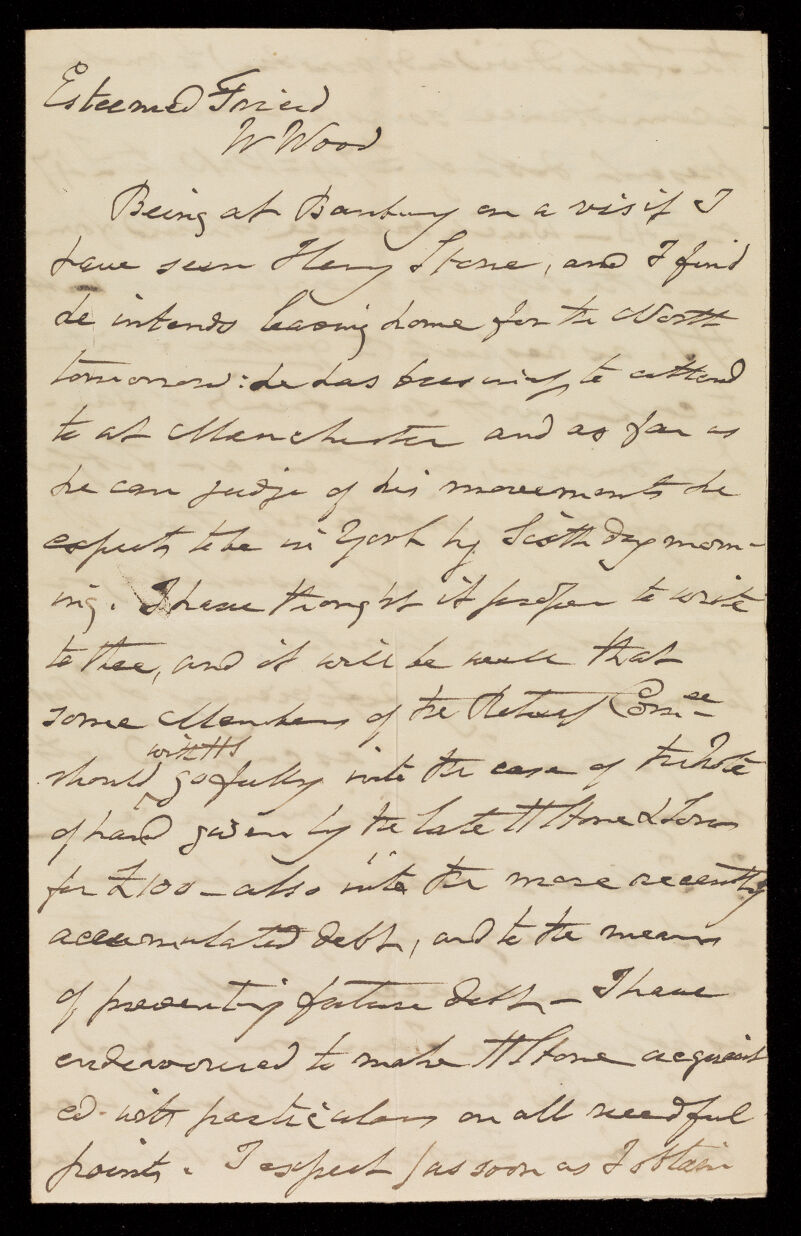 Esteemed Friend
W Wood
Being at Banbury on a visit I
have seen Henry Stone, and I find
he intends leaving home for the North
tomorrow: he has business to attend
to at Manchester and as far as
he can judge of his movements he
expects to be in York by Sixth day morn-
ing. I have thought it proper to write
to thee, and it will be well that
some Members of the Retreat Comee
with HS
should go fully into the case of the Note
of hand given by the late H Stone & Sons
for £100 - also into the more recently
accumulated debt, and to the means
of preventing future debt - I have
endeavoured to make H Stone acquaint
ed with particulars on all needful
points. I expect (as soon as I obtain